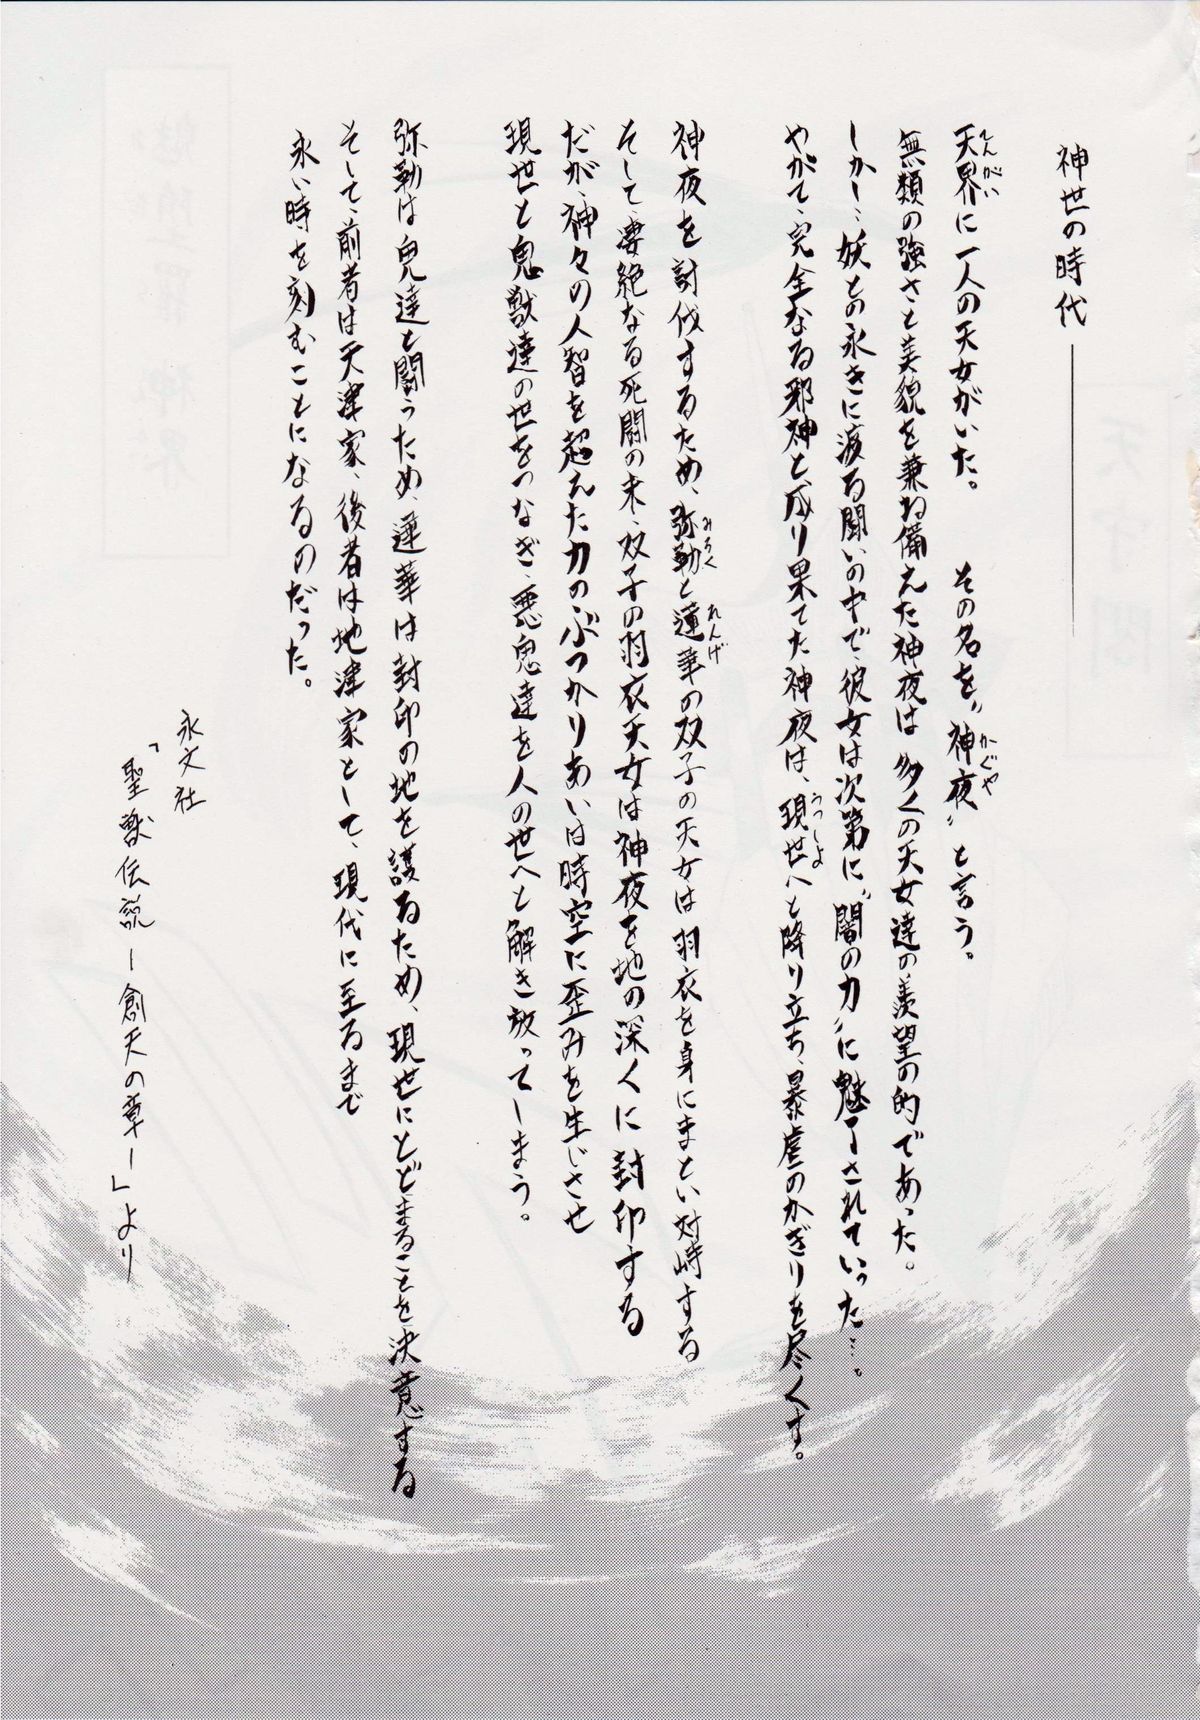 神世の時代――――――
天界に一人の天女がいた。　その名を〝神夜〟と言う。
無類の強さと美貌を兼ね備えた神夜は多くの天女達の羨望の的であった。
しかし…妖との永きに渡る闘いの中で、彼女は次第に〝闇の力〟に魅了されていった…。
やがて、完全なる邪神と成り果てた神夜は、現世へと降り立ち、暴虐のかぎりを尽くす。
神夜を討伐するため、弥勒と蓮華の双子の天女は羽衣を身にまとい対峙する
そして、凄絶なる死闘の末、双子の羽衣天女は神夜を地の深くに封印する
だが、神々の人智を超えた力のぶつかりあいは時空に歪みを生じさせ
現世と鬼獣達の世をつなぎ、悪鬼達を人の世へと解き放ってしまう。
弥勒は鬼達と闘うため、蓮華は封印の地を護るため、現世にとどまることを決意する
そして、前者は天津家、後者は地津家として、現代に至るまで
永い時を刻むことになるのだった。
永文社
「聖獣伝説ー創天の章ー」より